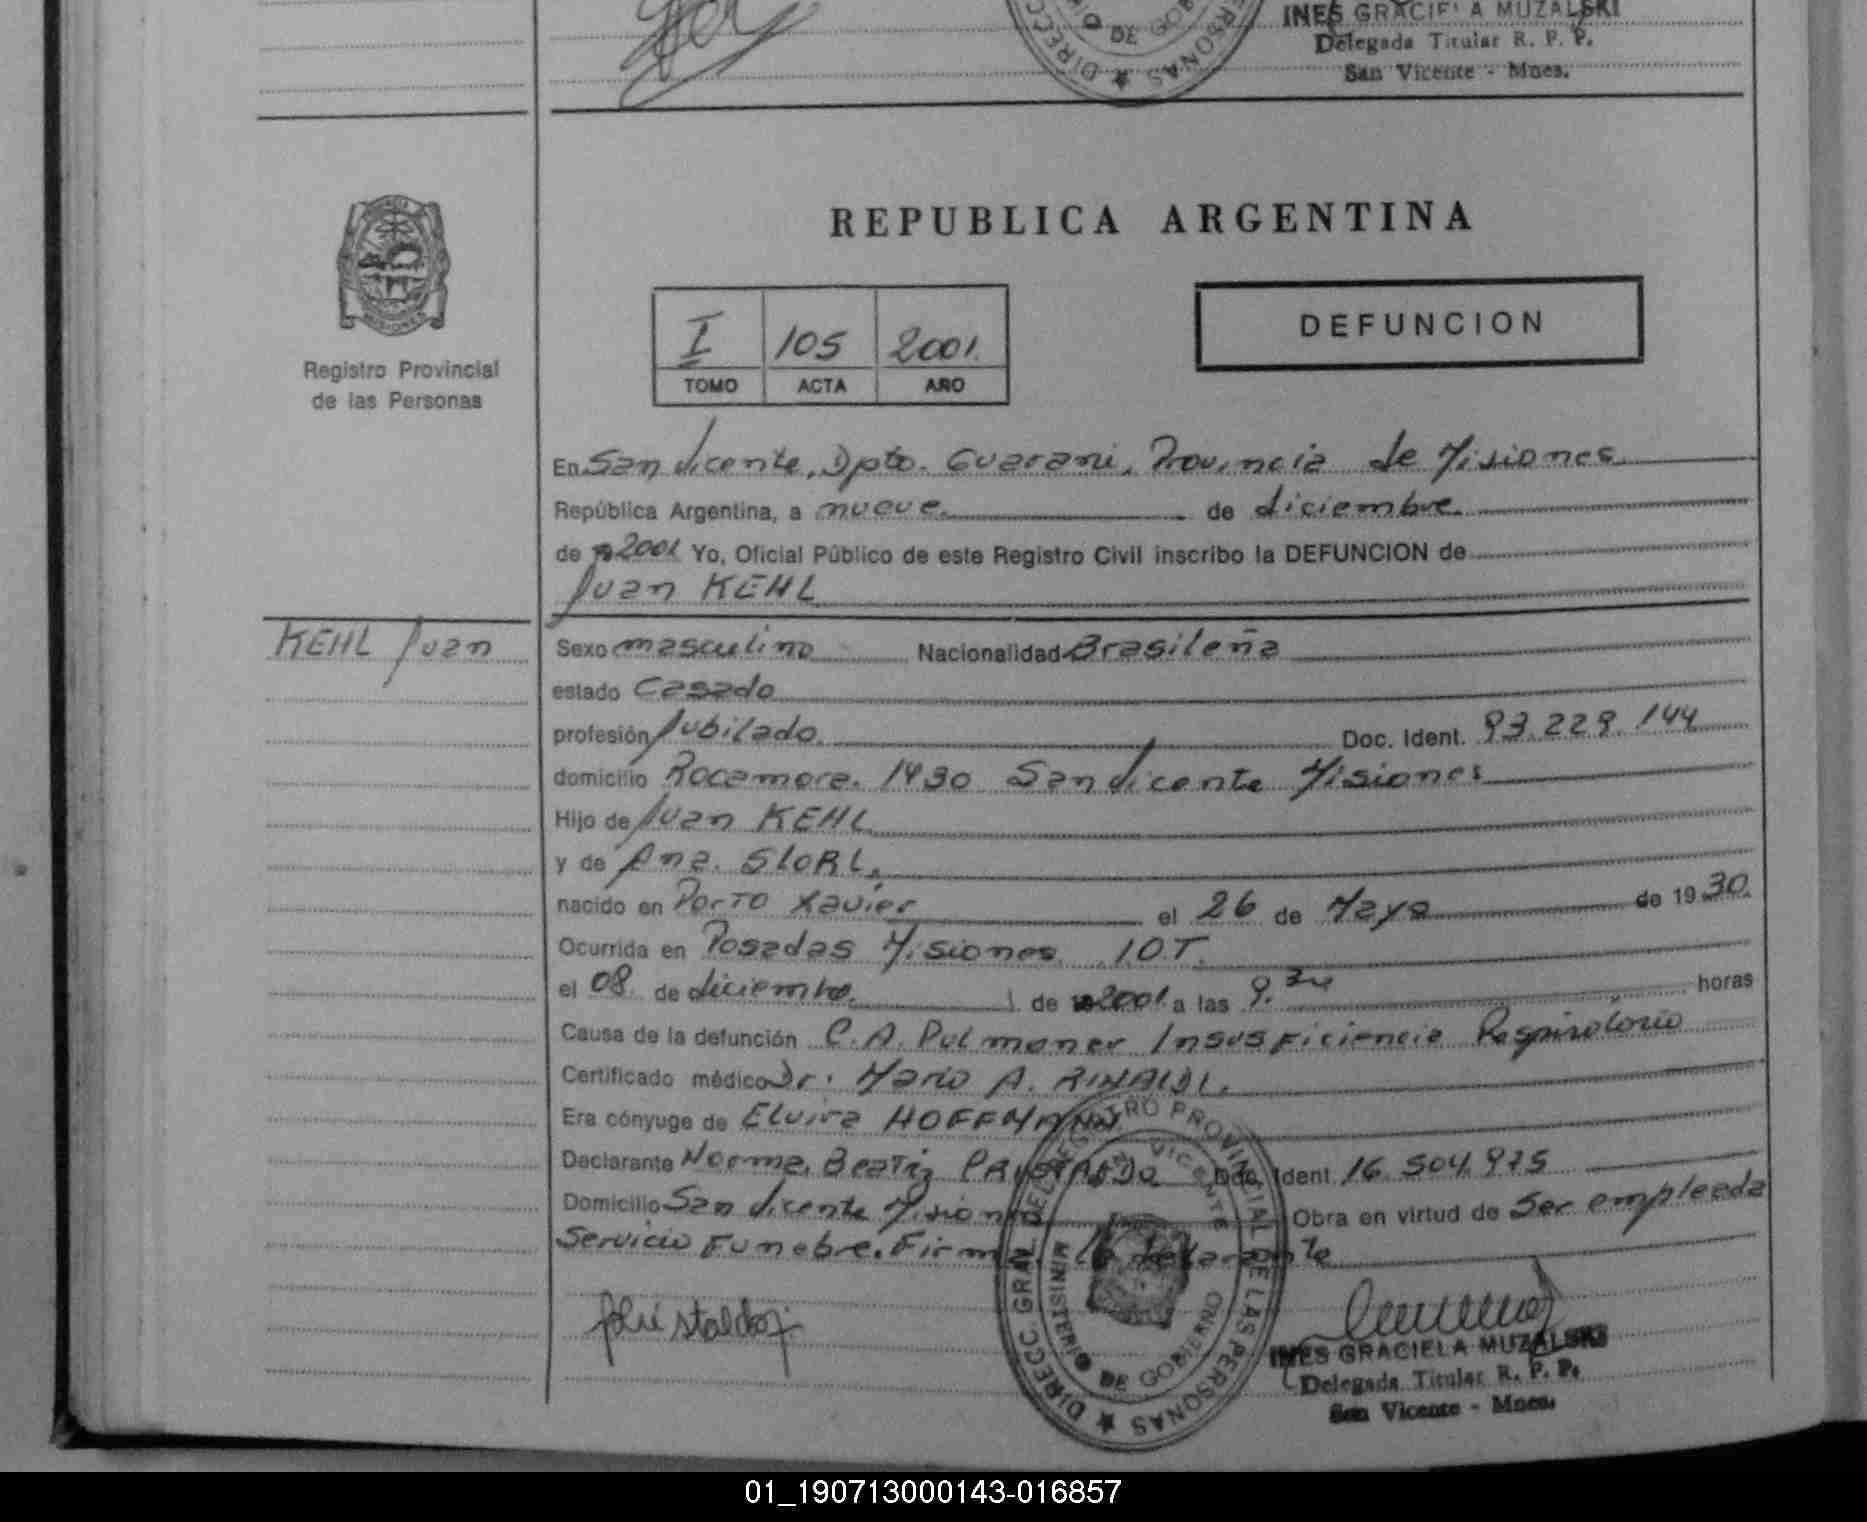 INES GRACIELA MUZALSKI
Delegada Titular R. P. P.
San Vicente - Mnes.
DE GOB
DIRECC
PERSONAS
REPUBLICA ARGENTINA
PROVINCIA
MISIONES
Registro Provincial
de las Personas
I 105 2001
TOMO ACTA AÑO
DEFUNCION
En San Vicente, Dpto. Guarani, Provincia de Misiones
República Argentina, a nueve de diciembre
de 2001 Yo, Oficial Público de este Registro Civil inscribo la DEFUNCION de
Juan KEHL
KEHL Juan
Sexo masculino Nacionalidad Brasileña
estado Casado
profesión Jubilado Doc. Ident. 93.229.144
domicilio Rocamora 1430 San Vicente Misiones
Hijo de Juan KEHL
y de Ana SLORL
nacido en Porto Xavier el 26 de Mayo de 1930
Ocurrida en Posadas Misiones I.O.T.
el 08 de diciembre de 2001 a las 9.30 horas
Causa de la defunción C.A. Pulmonar Insuficiencia Respiratorio
Certificado médico Dr. Mario A. RINALDI
Era cónyuge de Elvira HOFFMANN
Declarante Norma Beatriz Doc. Ident. 16.504.975
Domicilio San Vicente Misiones Obra en virtud de Ser empleada
Servicio Funebre. Firma la declarante
DIRECC. GRAL. DEL REGISTRO PROVINCIAL DE LAS PERSONAS
SAN VICENTE
MINISTERIO DE GOBIERNO
INES GRACIELA MUZALSKI
Delegada Titular R. P. P.
San Vicente - Mnes.
01_190713000143-016857